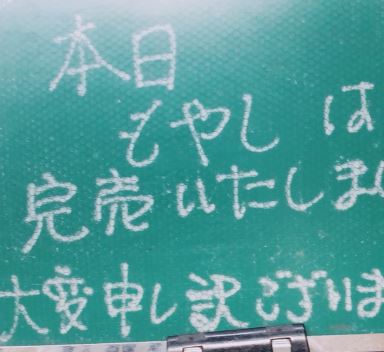 本日
もやし は
完売いたしまし
大変申し訳ございま